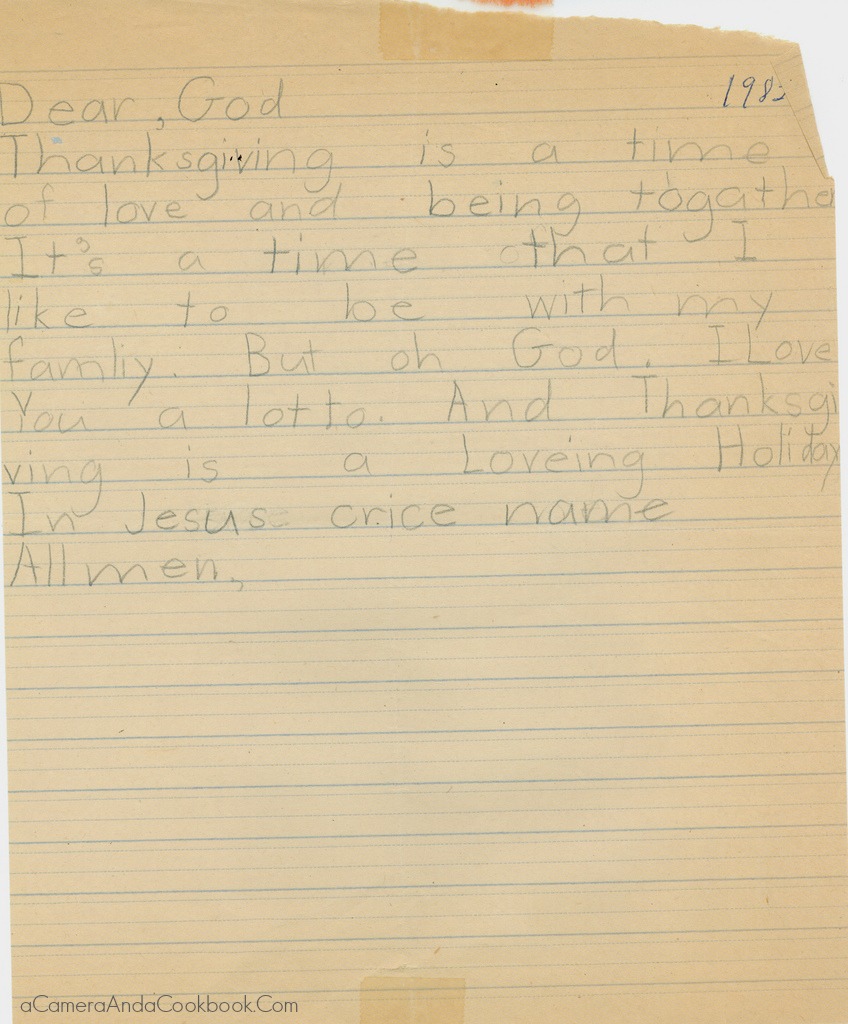 Dear, God
Thanksgiving is a time
of love and being togathe
It's a time that I
like to be with my
famliy. But oh God. I Love
You a lotto. And Thanksgi
ving is a Loveing Holiday
In Jesus crice name
All men,
aCameraAndaCookbook.Com